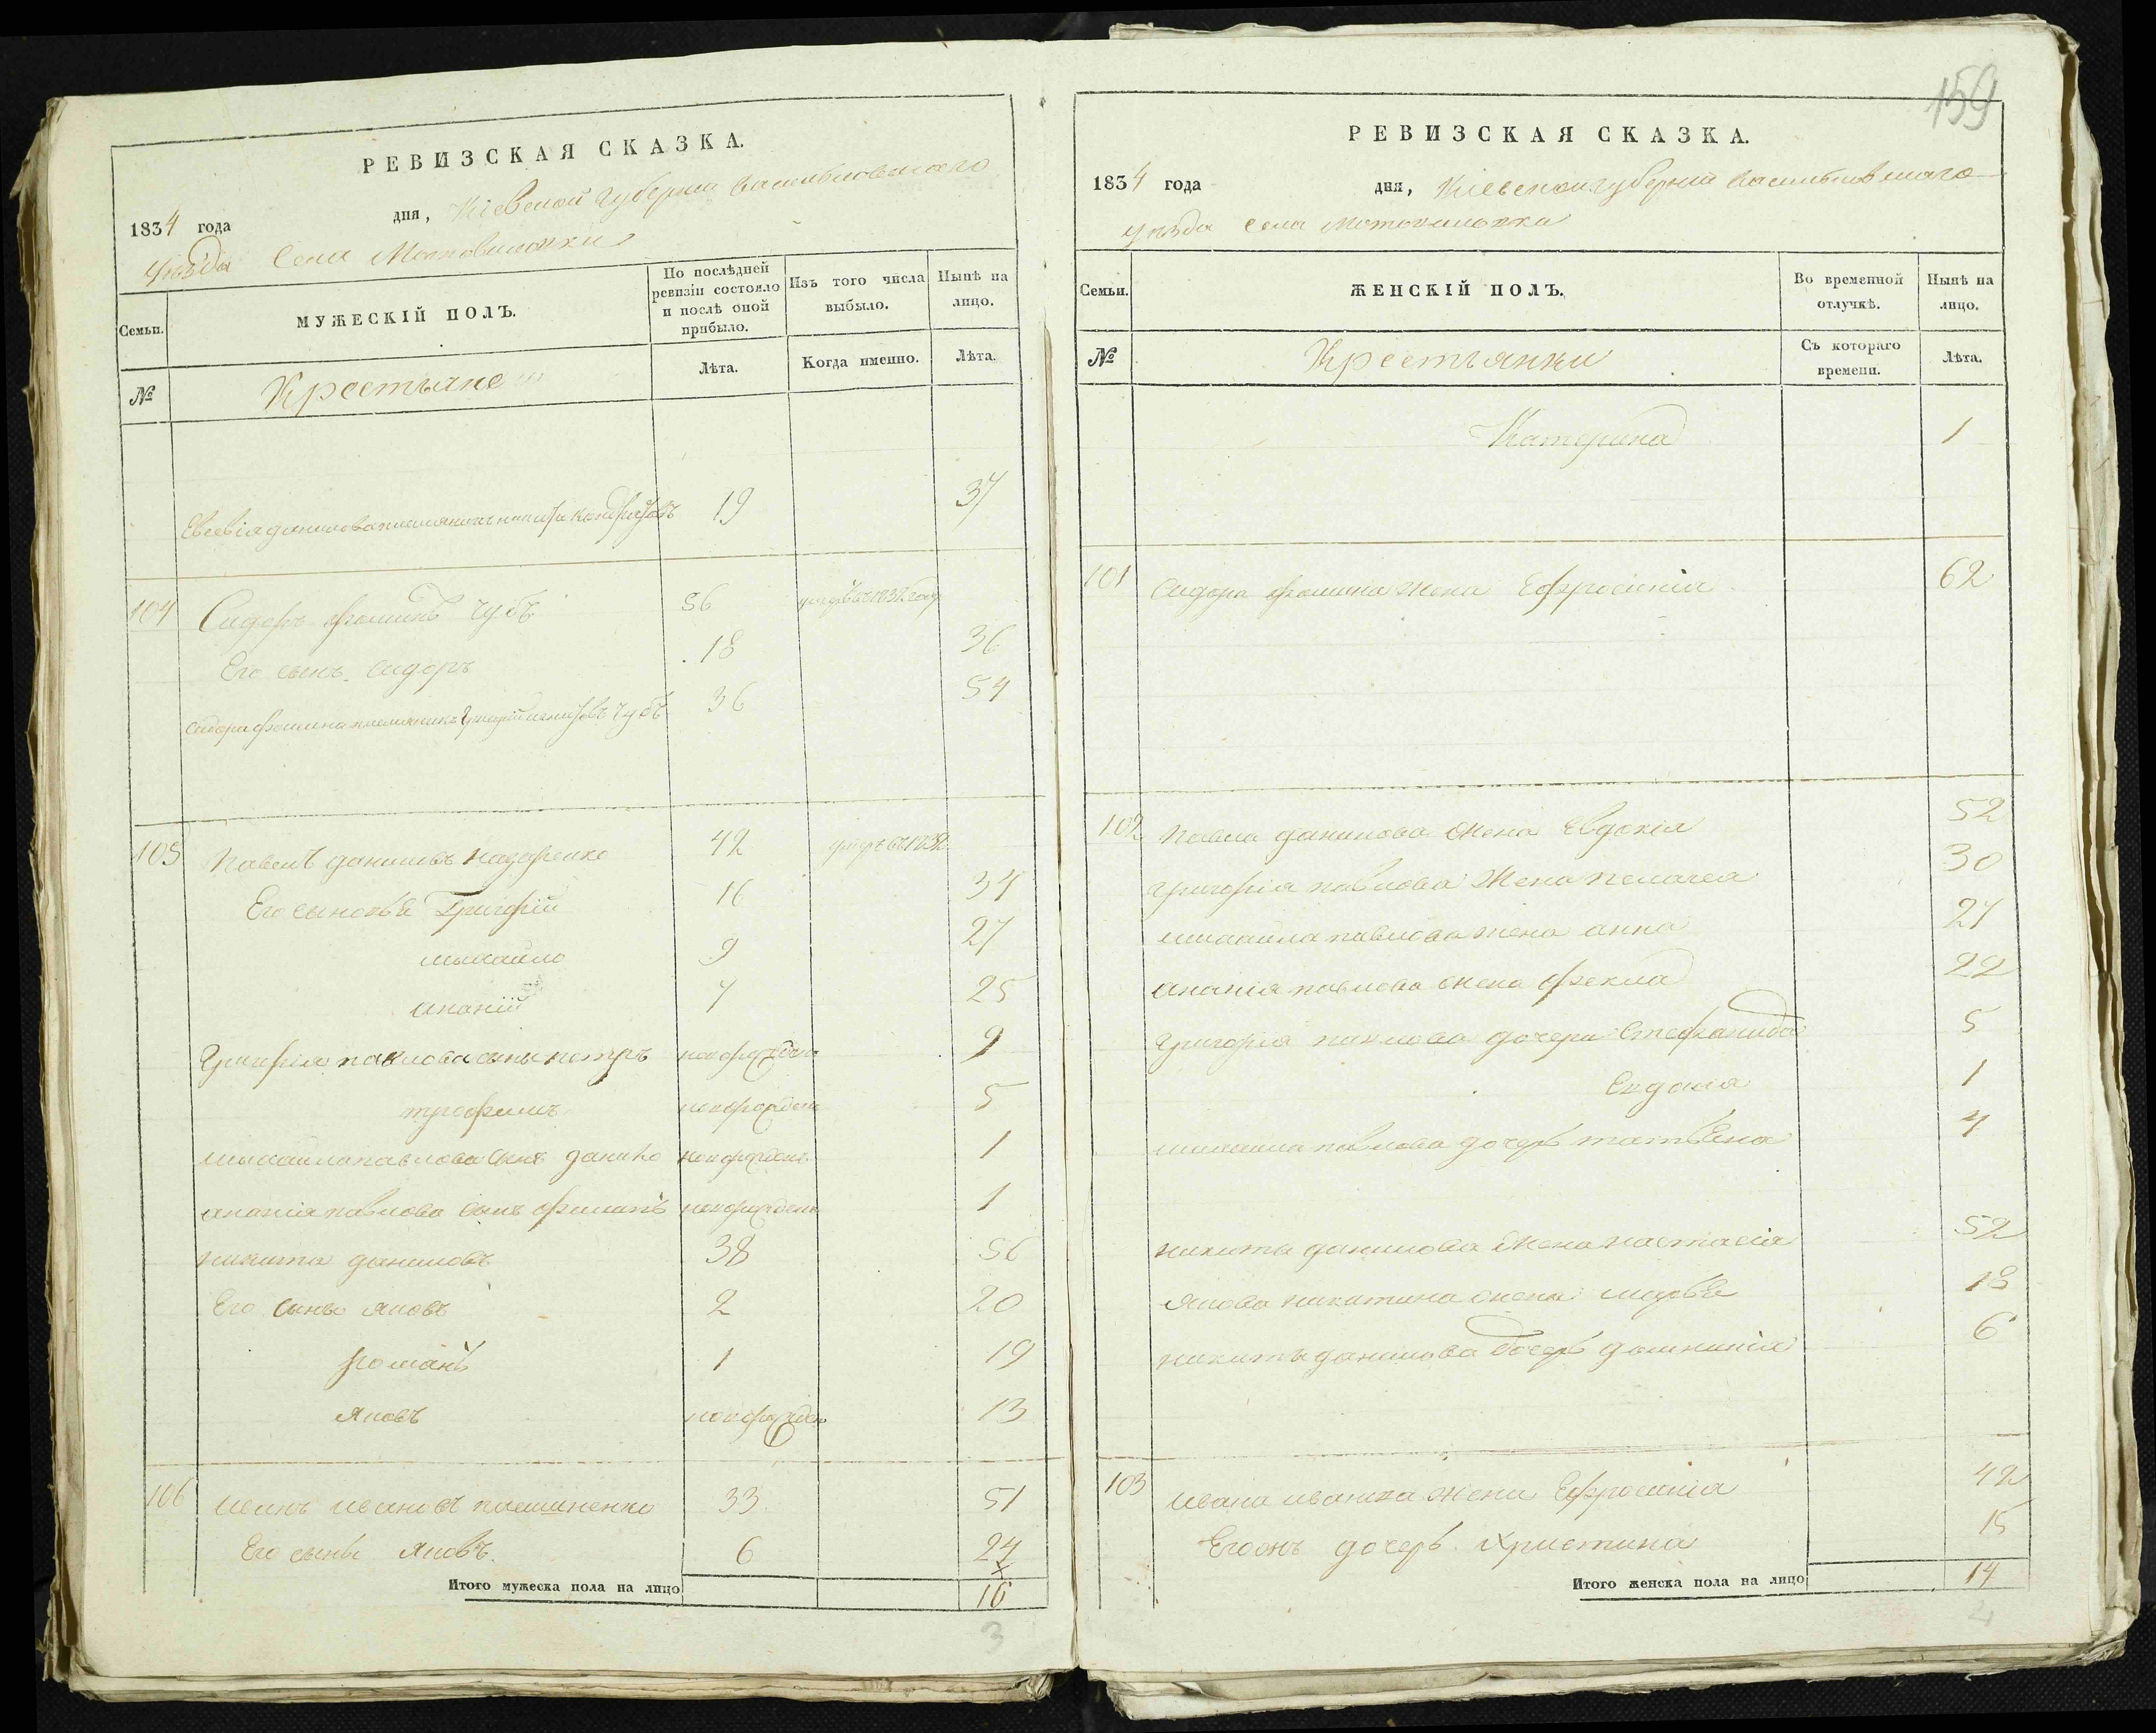 РЕВИЗСКАЯ СКАЗКА.
1834 года дня, Кіевской губерніи Васильковскаго
уѣзда Села Мотовиловки
Семьи. МУЖЕСКІЙ ПОЛЪ. По послѣдней ревизіи состояло и послѣ оной прибыло. Изъ того числа выбыло. Нынѣ на лицо.
№ Крестьяне Лѣта. Когда именно. Лѣта.
Евсевія данилова племянникъ 19 37
104 Сидоръ фоминъ Чубъ 56 умеръ въ 1832 году
Его сынъ сидоръ 18 36
Сидора фомина племяникъ Григорій Чубъ 36 54
105 Павелъ даниловъ назаренко 42 умеръ въ 1832
Его сыновьѣ Григорій 16 34
михайло 9 27
ананій 7 25
Григорія павлова сыны петръ новорожденъ 9
трофимъ новорожденъ 5
михайла павлова сынъ данило новорожденъ 1
ананія павлова сынъ филипъ новорожденъ 1
никита даниловъ 38 56
Его сыны яковъ 2 20
романъ 1 19
яковъ новорожденъ 13
106 иванъ ивановъ 33 51
Его сынъ яковъ. 6 24
Итого мужеска пола на лицо 16
3
159
РЕВИЗСКАЯ СКАЗКА.
1834 года дня, Кіевской губерніи Васильковскаго
уѣзда Села Мотовиловки
Семьи. ЖЕНСКІЙ ПОЛЪ. Во временной отлучкѣ. Нынѣ на лицо.
№ Крестьянки Съ котораго времени. Лѣта.
Катерина 1
101 Сидора фомина жена Ефросинія 62
102 Павла данилова жена Евдокія 52
григорія павлова жена пелагея 30
михайла павлова жена анна 27
ананія павлова жена фекла 22
григорія павлова дочери Стефанида 5
Евдокія 1
михайла павлова дочерь татьяна 4
никиты данилова жена настасія 52
якова никитина жена марфа 18
никиты данилова дочерь домникія 6
103 ивана иванова жена Ефросинія 42
Егожъ дочерь христина 15
Итого женска пола на лицо 14
4